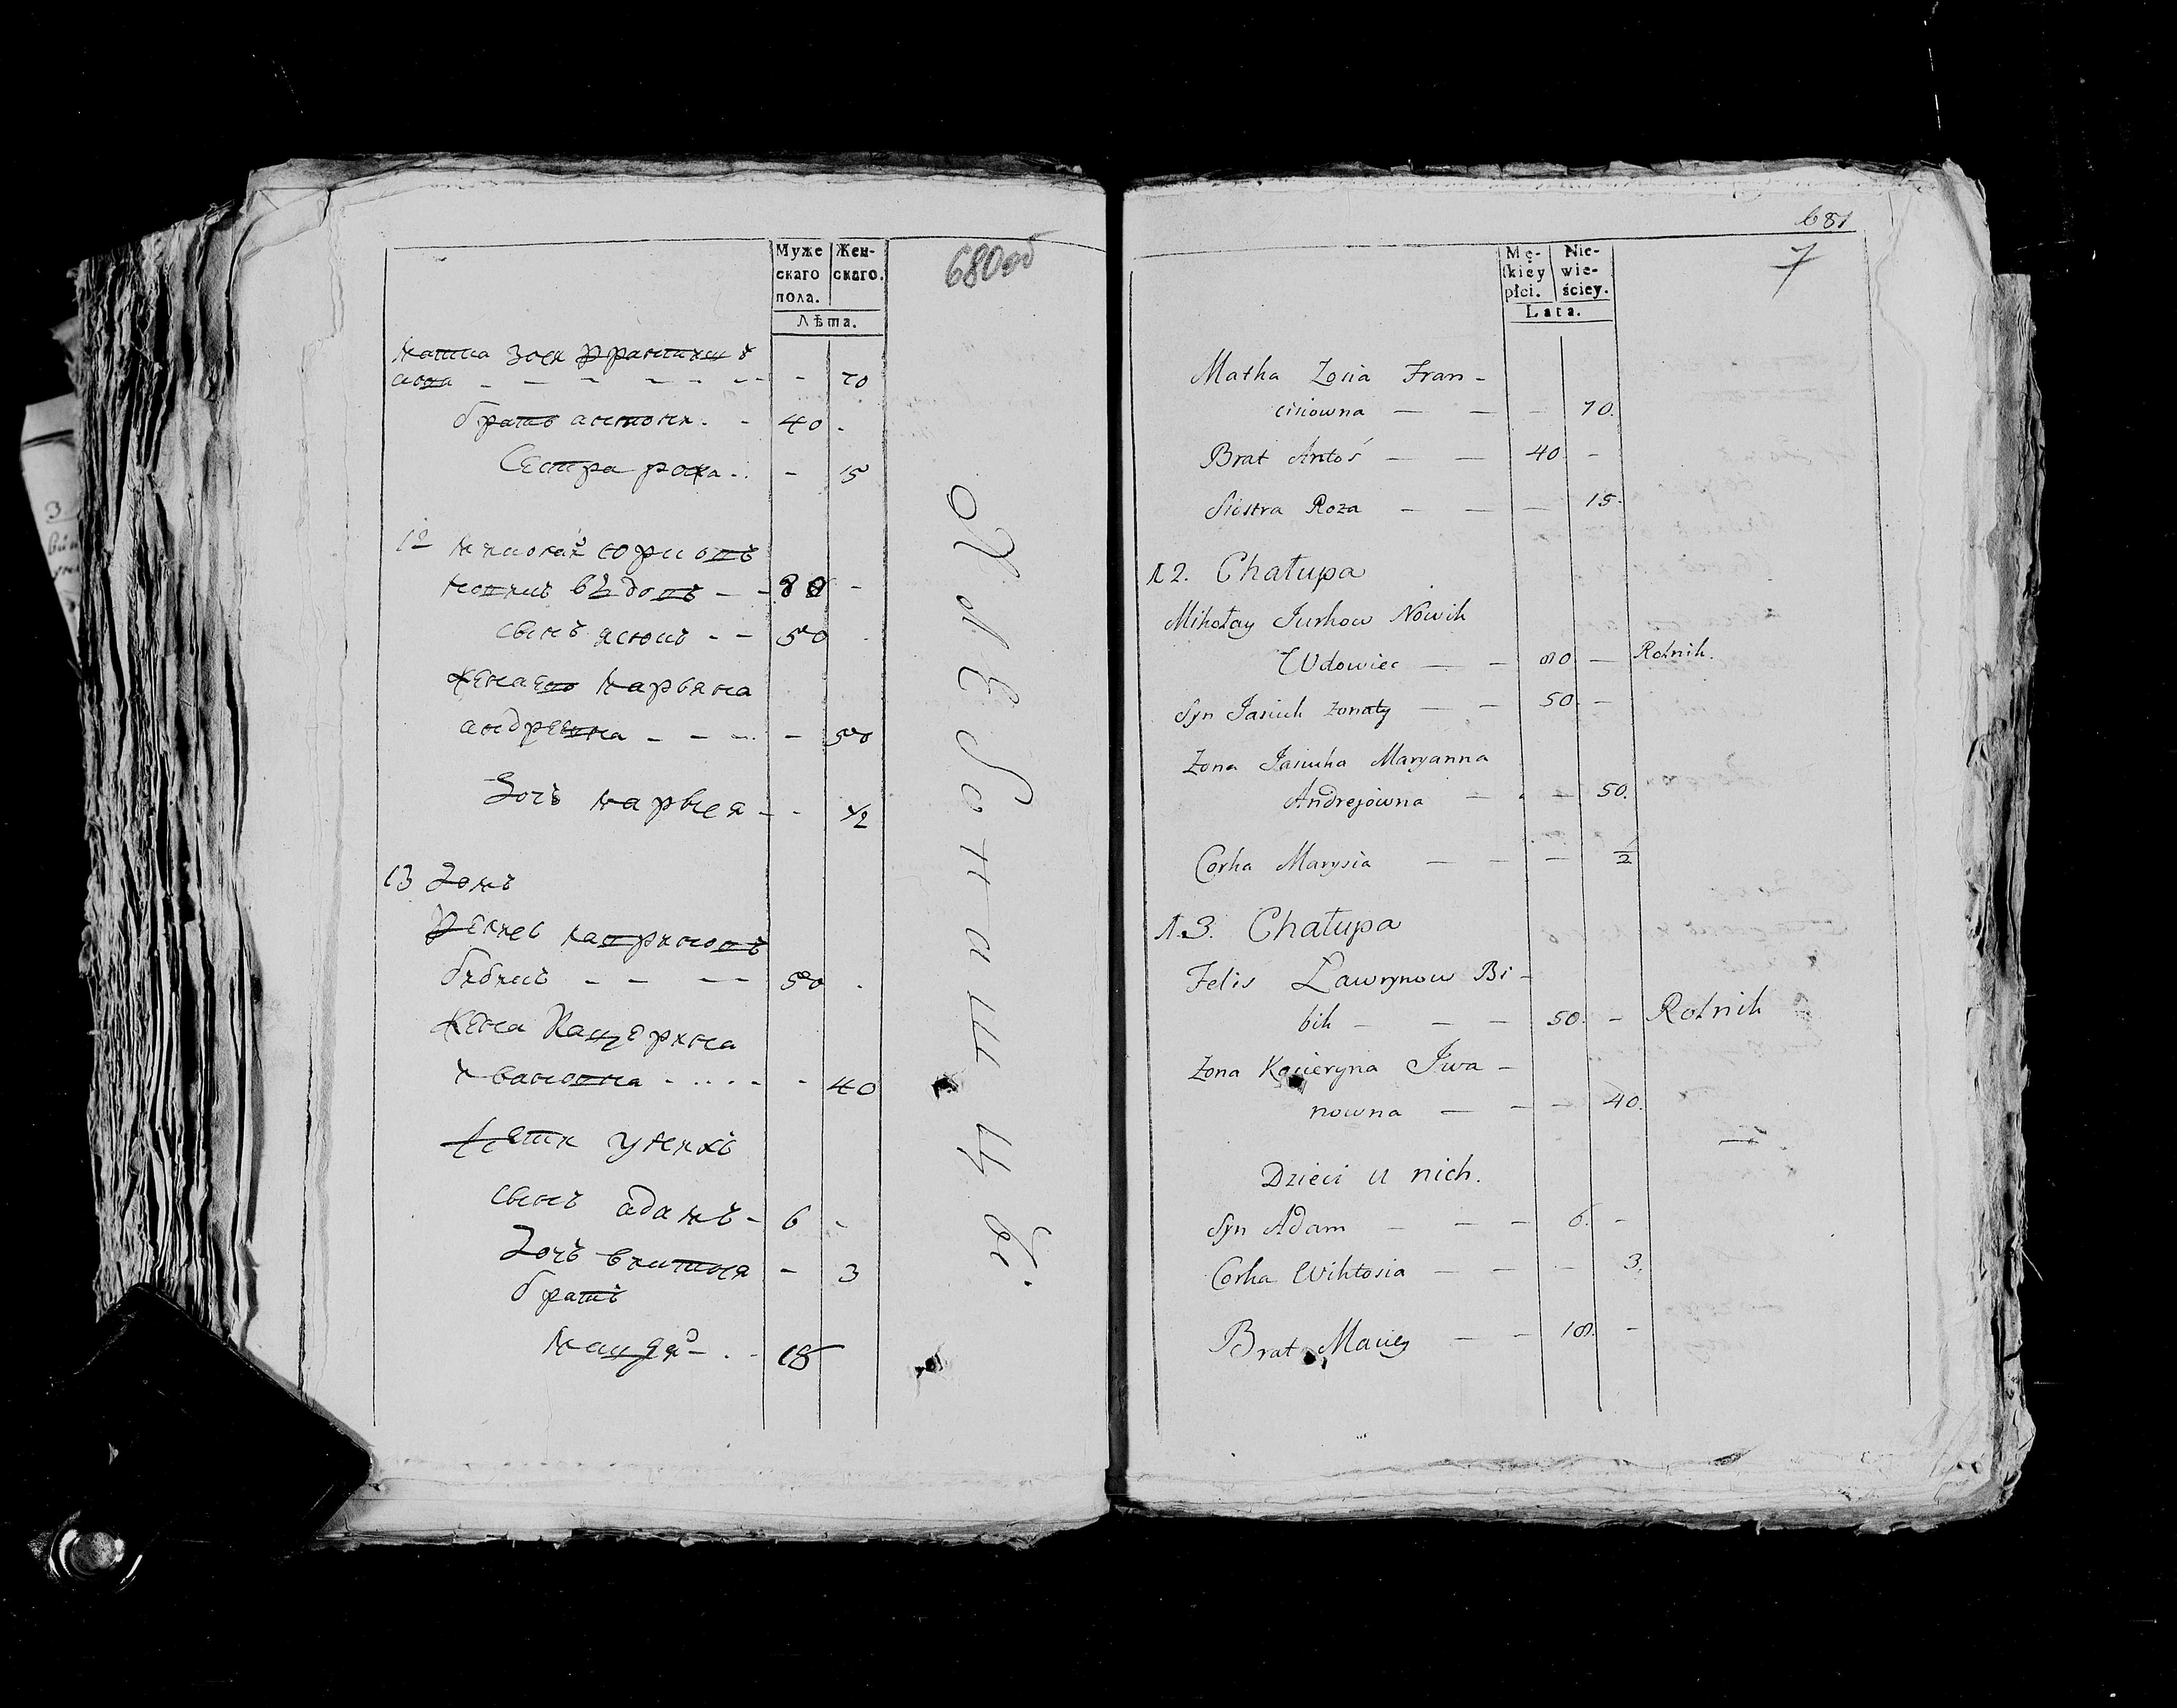 680об
Муже Жен-
скаго скаго.
пола.
Лѣта.
матка зося францишк
овна - - - - - - - 70
братъ антони. - 40 -
Сестра рожа - - 15
12 миколай юрковъ
новикъ вѣдовъ - - 80 -
сынъ ясюкъ - - 50 -
жена его марьяна
андреевна - - - - 50
Дочь марыся - - 1/2
13 Домъ
феликс лавриновъ
бибикъ - - - - 50 -
жена Кацерина
ивановна - - - - 40
Дети у нихъ
сынъ адамъ - 6 -
Дочъ виктося - 3
братъ
мацѣй - - 18
681
7
Mę- Nie-
skiey wie-
płci. ściey.
Lata.
Matka Zosia Fran-
cisiowna — — — 70.
Brat Antoś — — 40 -
Siostra Roza — — — 15.
12. Chałupa
Mikołay Jurkow Nowik
Wdowiec — — 80 — Rolnik.
Syn Jasiuk żonaty — — 50 -
Zona Jasiuka Maryanna
Andrejowna — - — 50.
Corka Marysia — — — 1/2
13. Chałupa
Felis Lawrynow Bi-
bik — — — 50. - Rolnik
Zona Kacieryna Iwa-
nowna — — — 40.
Dzieci u nich.
Syn Adam — — — 6. -
Corka Wiktosia — — — 3.
Brat Maciey — — 18. -